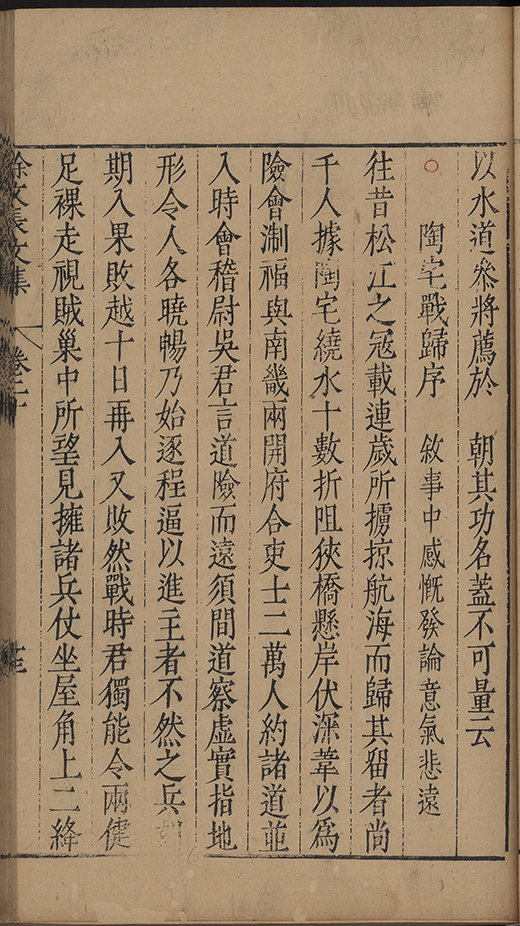 以水道叅將薦於 朝其功名蓋不可量云
○ 陶宅戰歸序 敘事中感慨發論意氣悲遠
往昔松江之冦載連歲所擄掠航海而歸其畱者尚
千人據陶宅繞水十數折阻狹橋懸岸伏深葦以爲
險會淛福與南畿兩開府合吏士二萬人約諸道並
入時會稽尉吳君言道險而遠須間道察虛實指地
形令人各曉暢乃始逐程逼以進主者不然之兵
期入果敗越十日再入又敗然戰時君獨能令兩健
足裸走視賊巢中所望見擁諸兵仗坐屋角上二絳
徐文長文集 卷二十